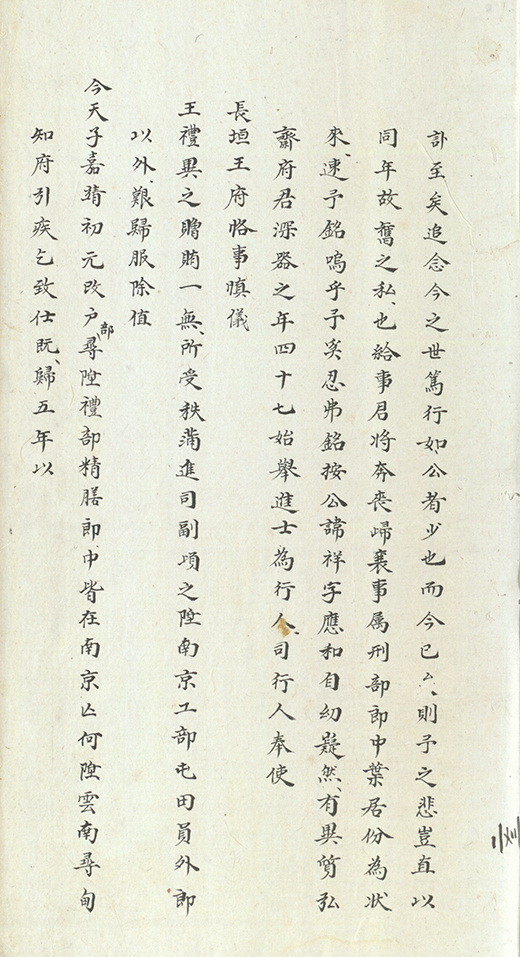 訃至矣追念今之世篤行如公者少也而今已亡則予之悲豈直以
同年故舊之私也給事君將奔喪歸襄事属刑部郎中葉居份為狀
來速予銘嗚乎予奚忍弗銘按公諱祥字應和自幼嶷然有異質弘
齋府君深器之年四十七始舉進士為行人司行人奉使
長垣王府恪事慎儀
王禮異之贈賄一無所受秩滿進司副頃之陞南京工部屯田員外郎
以外艱歸服除值
今天子嘉靖初元改户部尋陞禮部精膳郎中皆在南京亡何陞雲南尋甸
知府引疾乞致仕既歸五年以